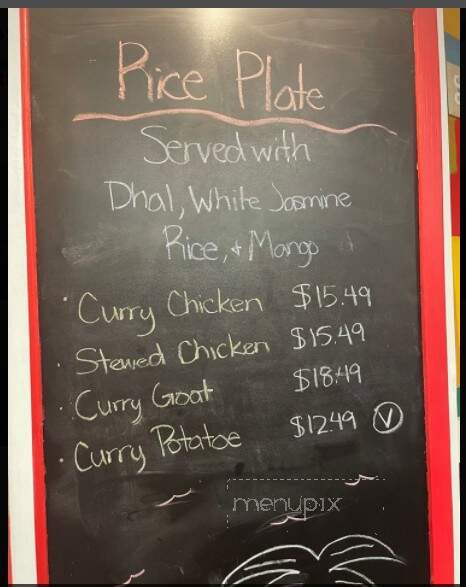 Rice Plate
Served with
Dhal, White Jasmine
Rice, + Mango
· Curry Chicken $15.49
· Stewed Chicken $15.49
· Curry Goat $18.49
· Curry Potatoe $12.49 Ⓥ
menupix